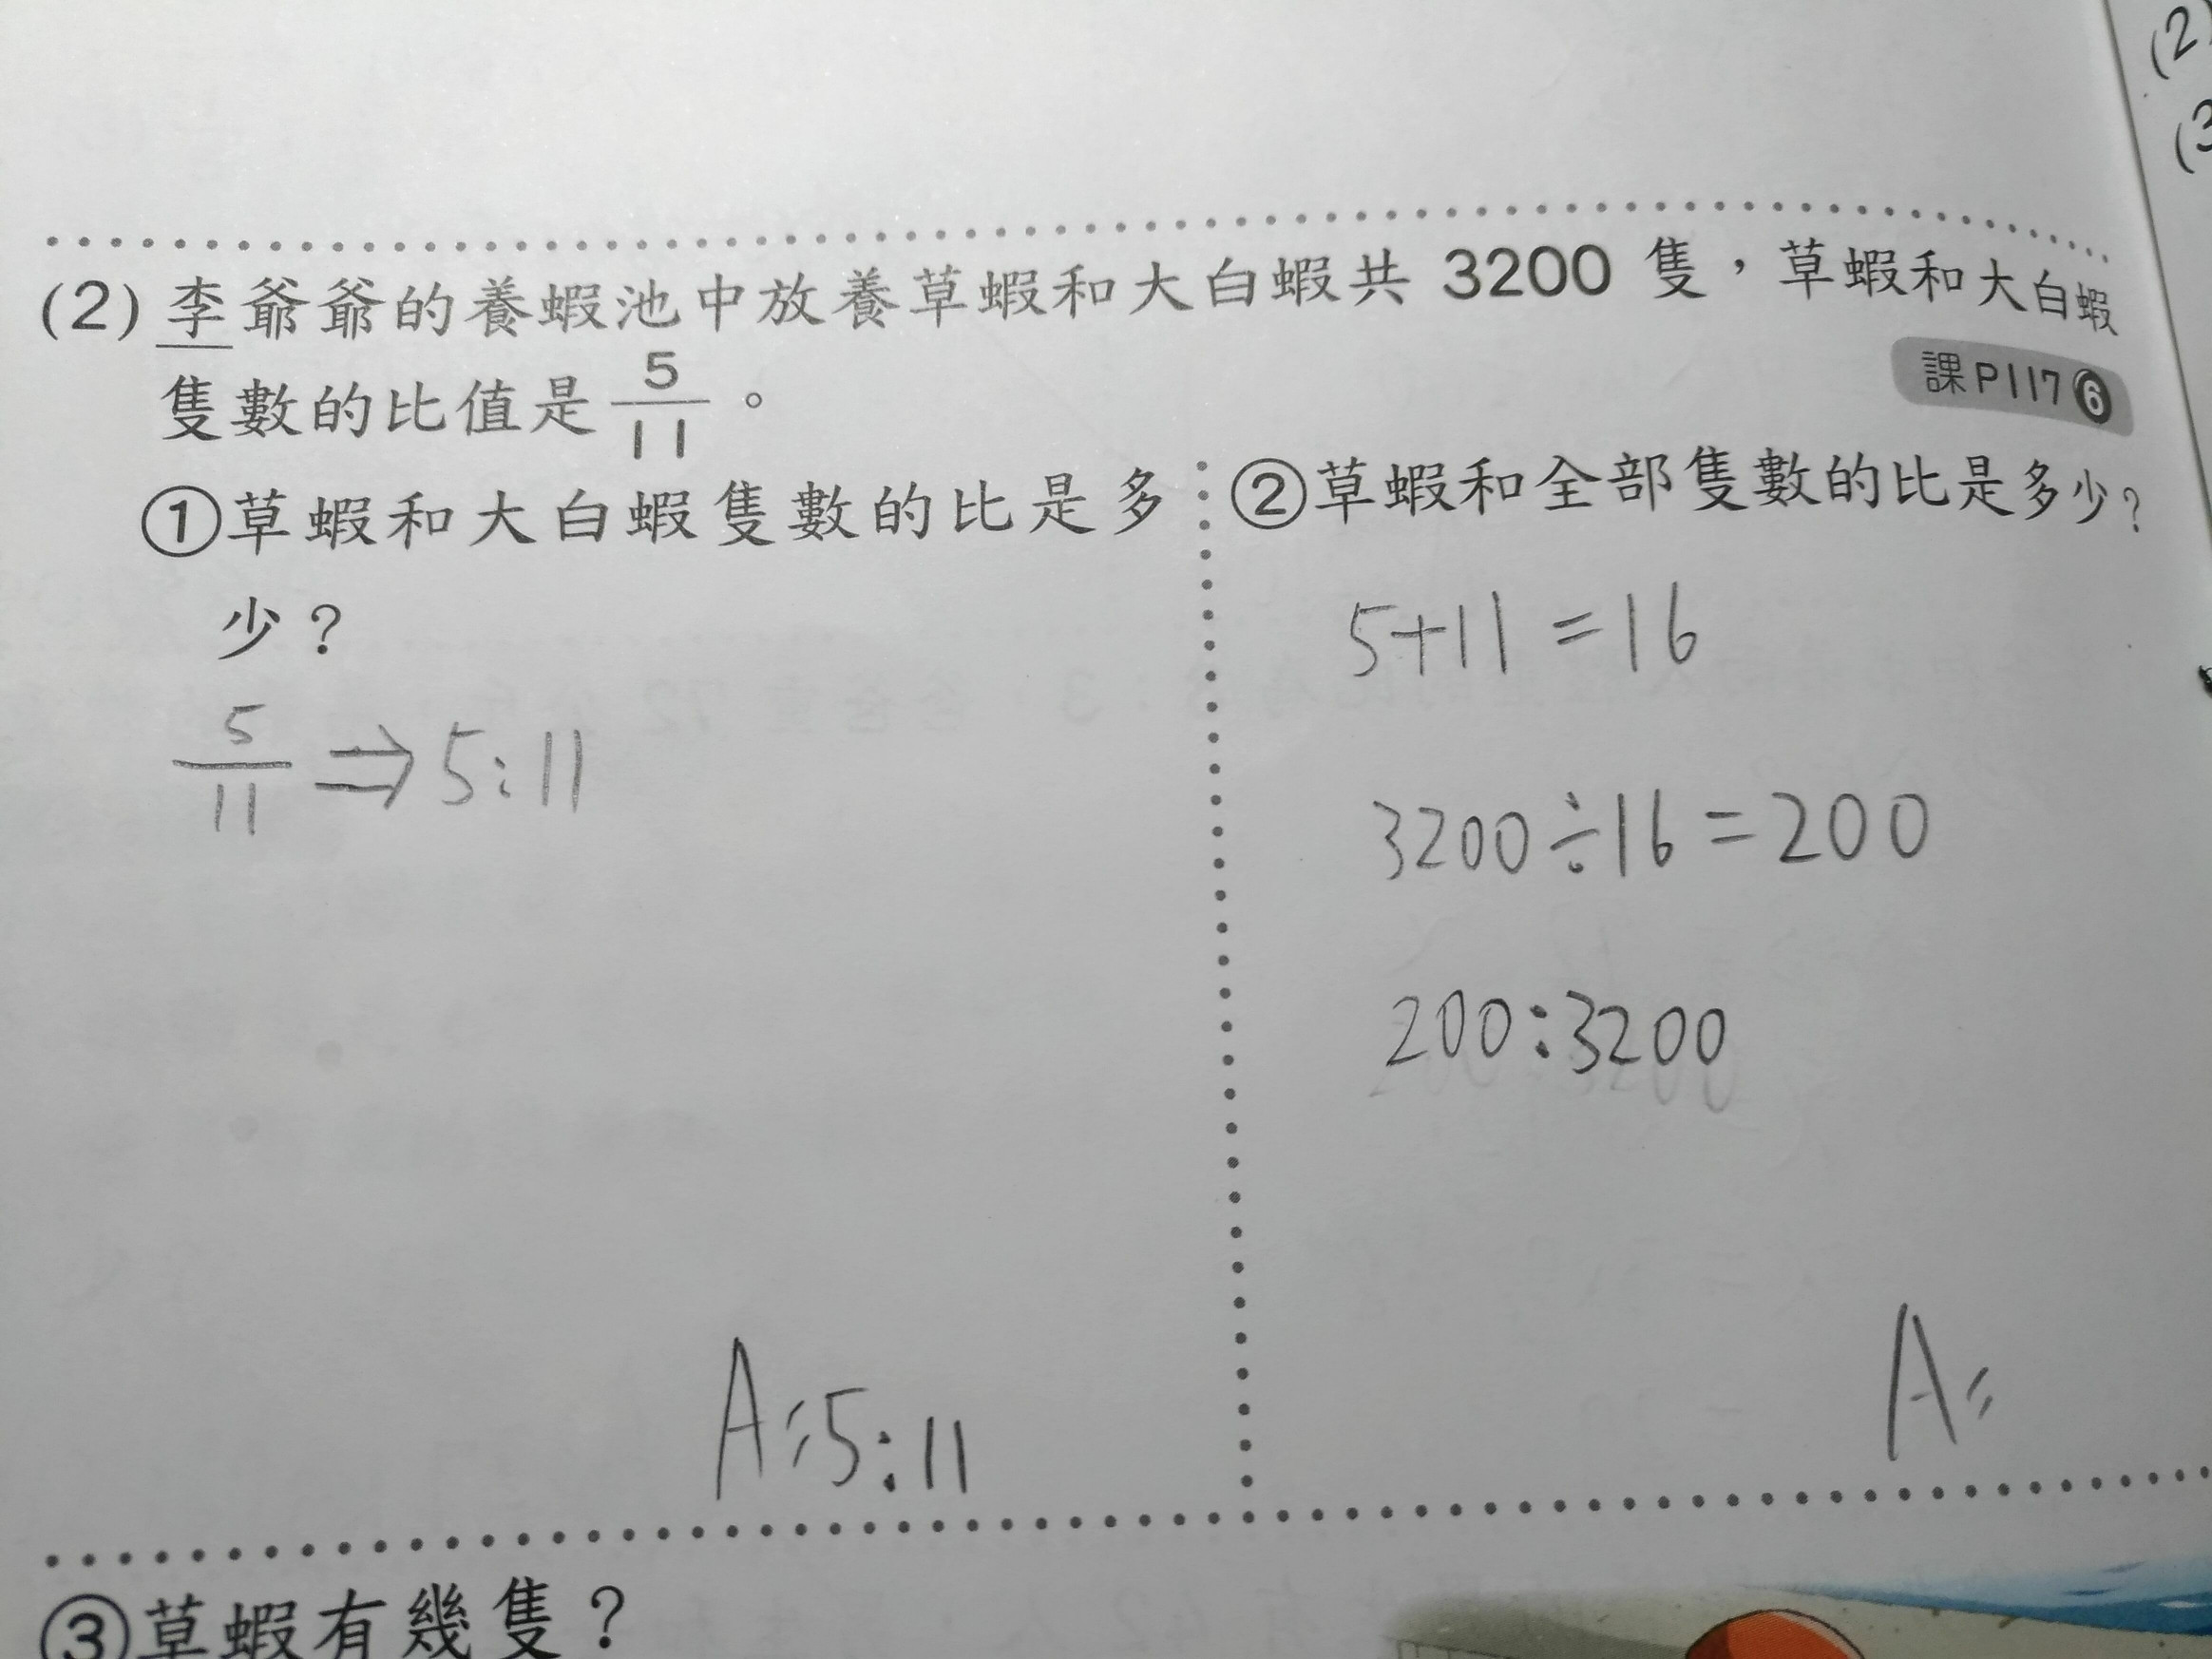 (2) 李爺爺的養蝦池中放養草蝦和大白蝦共 3200 隻，草蝦和大白蝦
隻數的比值是 5/11 。
課P117 6
①草蝦和大白蝦隻數的比是多
少？
5/11 ⇒ 5:11
A:5:11
②草蝦和全部隻數的比是多少？
5+11=16
3200÷16=200
200:3200
A:
③草蝦有幾隻？
(2)
(3